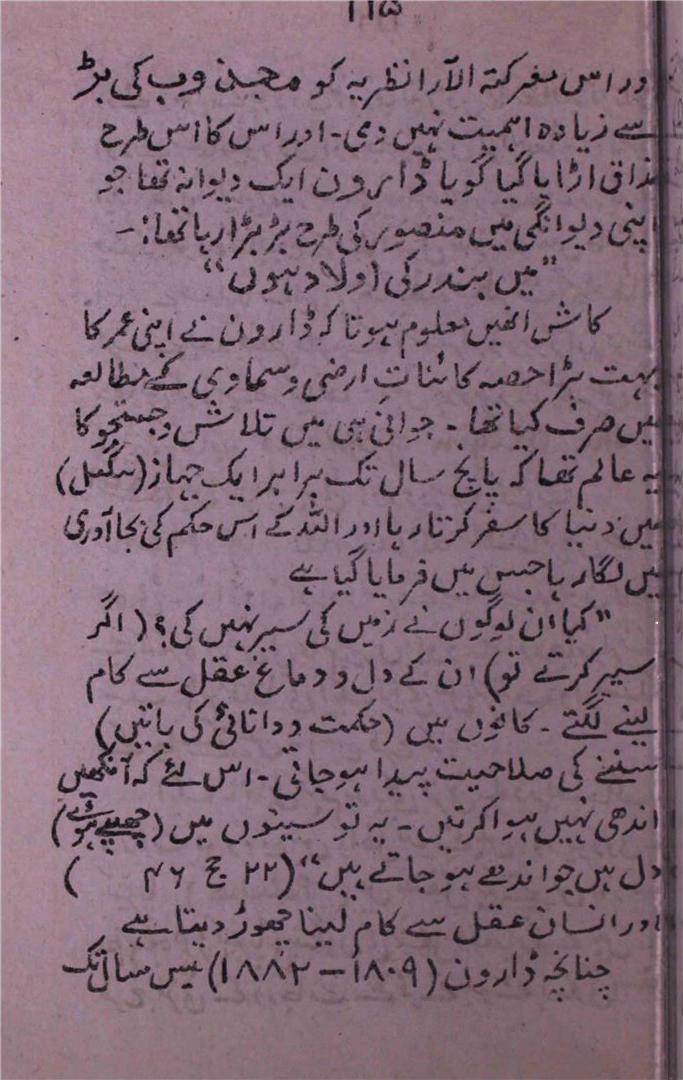 ۱۱۵
اور اس معرکتہ الآرا نظریہ کو مجذوب کی بڑ
سے زیادہ اہمیت نہیں دی۔ اور اس کا اس طرح
مذاق اڑایا گیا گویا ڈارون ایک دیوانہ تھا جو
اپنی دیوانگی میں منصور کی طرح بڑبڑا رہا تھا:۔
"میں بندر کی اولاد ہوں"
کاش انھیں معلوم ہوتا کہ ڈارون نے اپنی عمر کا
بہت بڑا حصہ کائناتِ ارضی و سماوی کے مطالعہ
میں صرف کیا تھا۔ جوانی ہی میں تلاش و جستجو کا
یہ عالم تھا کہ پانچ سال تک برابر ایک جہاز (بیگل)
میں دنیا کا سفر کرتا رہا اور اللہ کے اس حکم کی بجا آوری
میں لگا رہا جس میں فرمایا گیا ہے
"کیا ان لوگوں نے زمین کی سیر نہیں کی؟ (اگر
سیر کرتے تو) ان کے دل و دماغ عقل سے کام
لینے لگتے۔ کانوں میں (حکمت و دانائی کی باتیں)
سننے کی صلاحیت پیدا ہو جاتی۔ اس لئے کہ آنکھیں
اندھی نہیں ہوا کرتیں۔ یہ تو سینوں میں (چھپے ہوئے)
دل ہیں جو اندھے ہو جاتے ہیں" (۲۲ حج ۴۶ )
اور انسان عقل سے کام لینا چھوڑ دیتا ہے
چنانچہ ڈارون (۱۸۰۹ – ۱۸۸۲) بیس سال تک